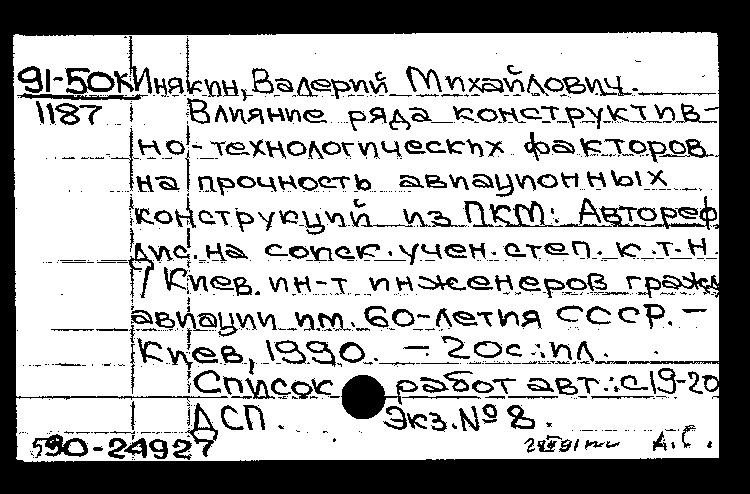 91-50к Инякин, Валерий Михайлович.
1187 Влияние ряда конструктив-
но-технологических факторов
на прочность авиационных
конструкций из ПКМ: Автореф
дис. на соиск. учен. степ. к.т.н.
/ Киев. ин-т инженеров гражд
авиации им. 60-летия СССР. –
Киев, 1990. – 20с.:ил.
Список работ авт.:с19-20
ДСП. Экз.№8.
590-24927 А.С.